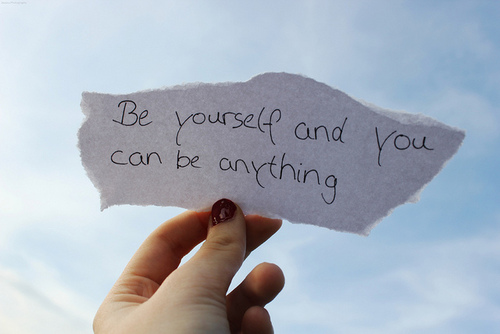 Be yourself and you
can be anything